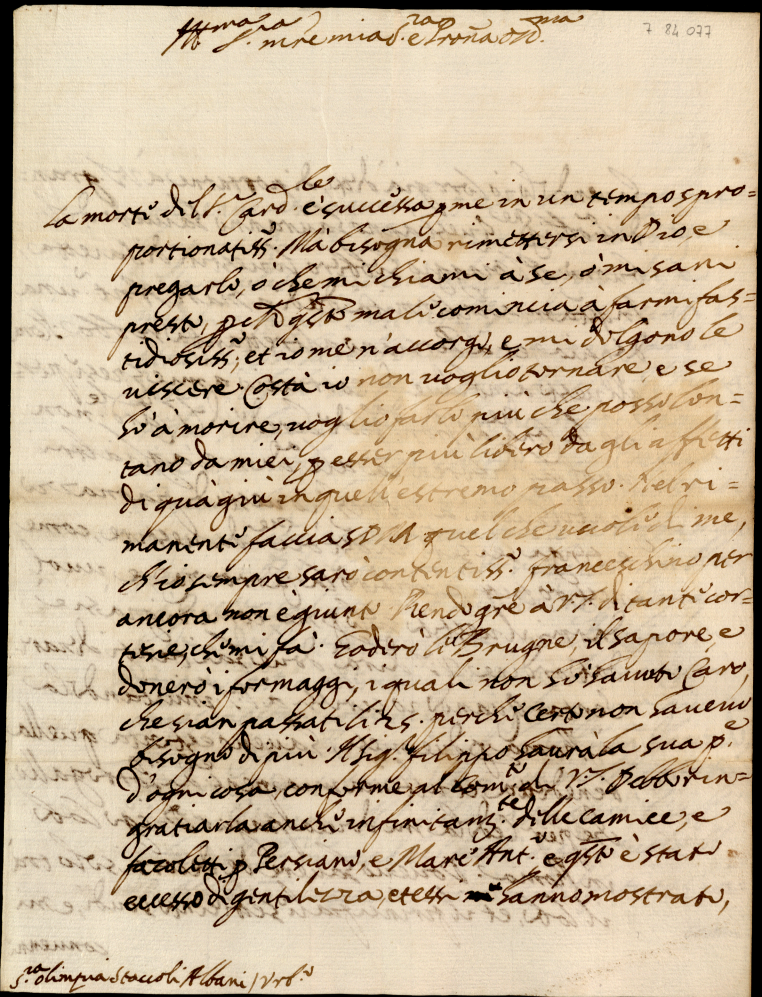 Ill.ma S.ra mre mia S.ra e Prona Oss.ma
7 84 077
La morte del S.r Card.le è successa p me in un tempo spro=
portionatiss.o Mà bisogna rimettersi in Dio, e
pregarlo, ò che mi chiami à se, ò mi sani
presto, pche qsto male comincia à farmi fas=
tidiosiss.o, et io me n'accorgo, e mi dolgono le
viscere. Costà io non voglio tornare e se
hò à morire, voglio farlo più che posso lon=
tano da miei, p esser più libero dagli affetti
di quà giù in quell'estremo passo. Nel ri=
manente faccia S.D.M. quel che vuole di me,
ch'io sempre sarò contentiss.o franceschino per
ancora non è giunto Rendo gre à V.S. di tante cor=
tesie, che mi fà. Goderò le Brugne, il sapore, e
donerò i formaggi, i quali non hò hauuto Caro,
che sian passati li 25. perche certo non haueuo
bisogno di più. Il Sig.r filippo haurà la sua p.e
d'ogni cosa, conforme al com.to di V.S. Debbo rin=
gratiarla anche infinitam.te delle camice, e
facoletti p Persiano, e Marc'Ant.o e qsto è stato
eccesso di gentilezza, et essi hanno mostrato,
S.ra Olimpia Staccoli Albani / Urb.o